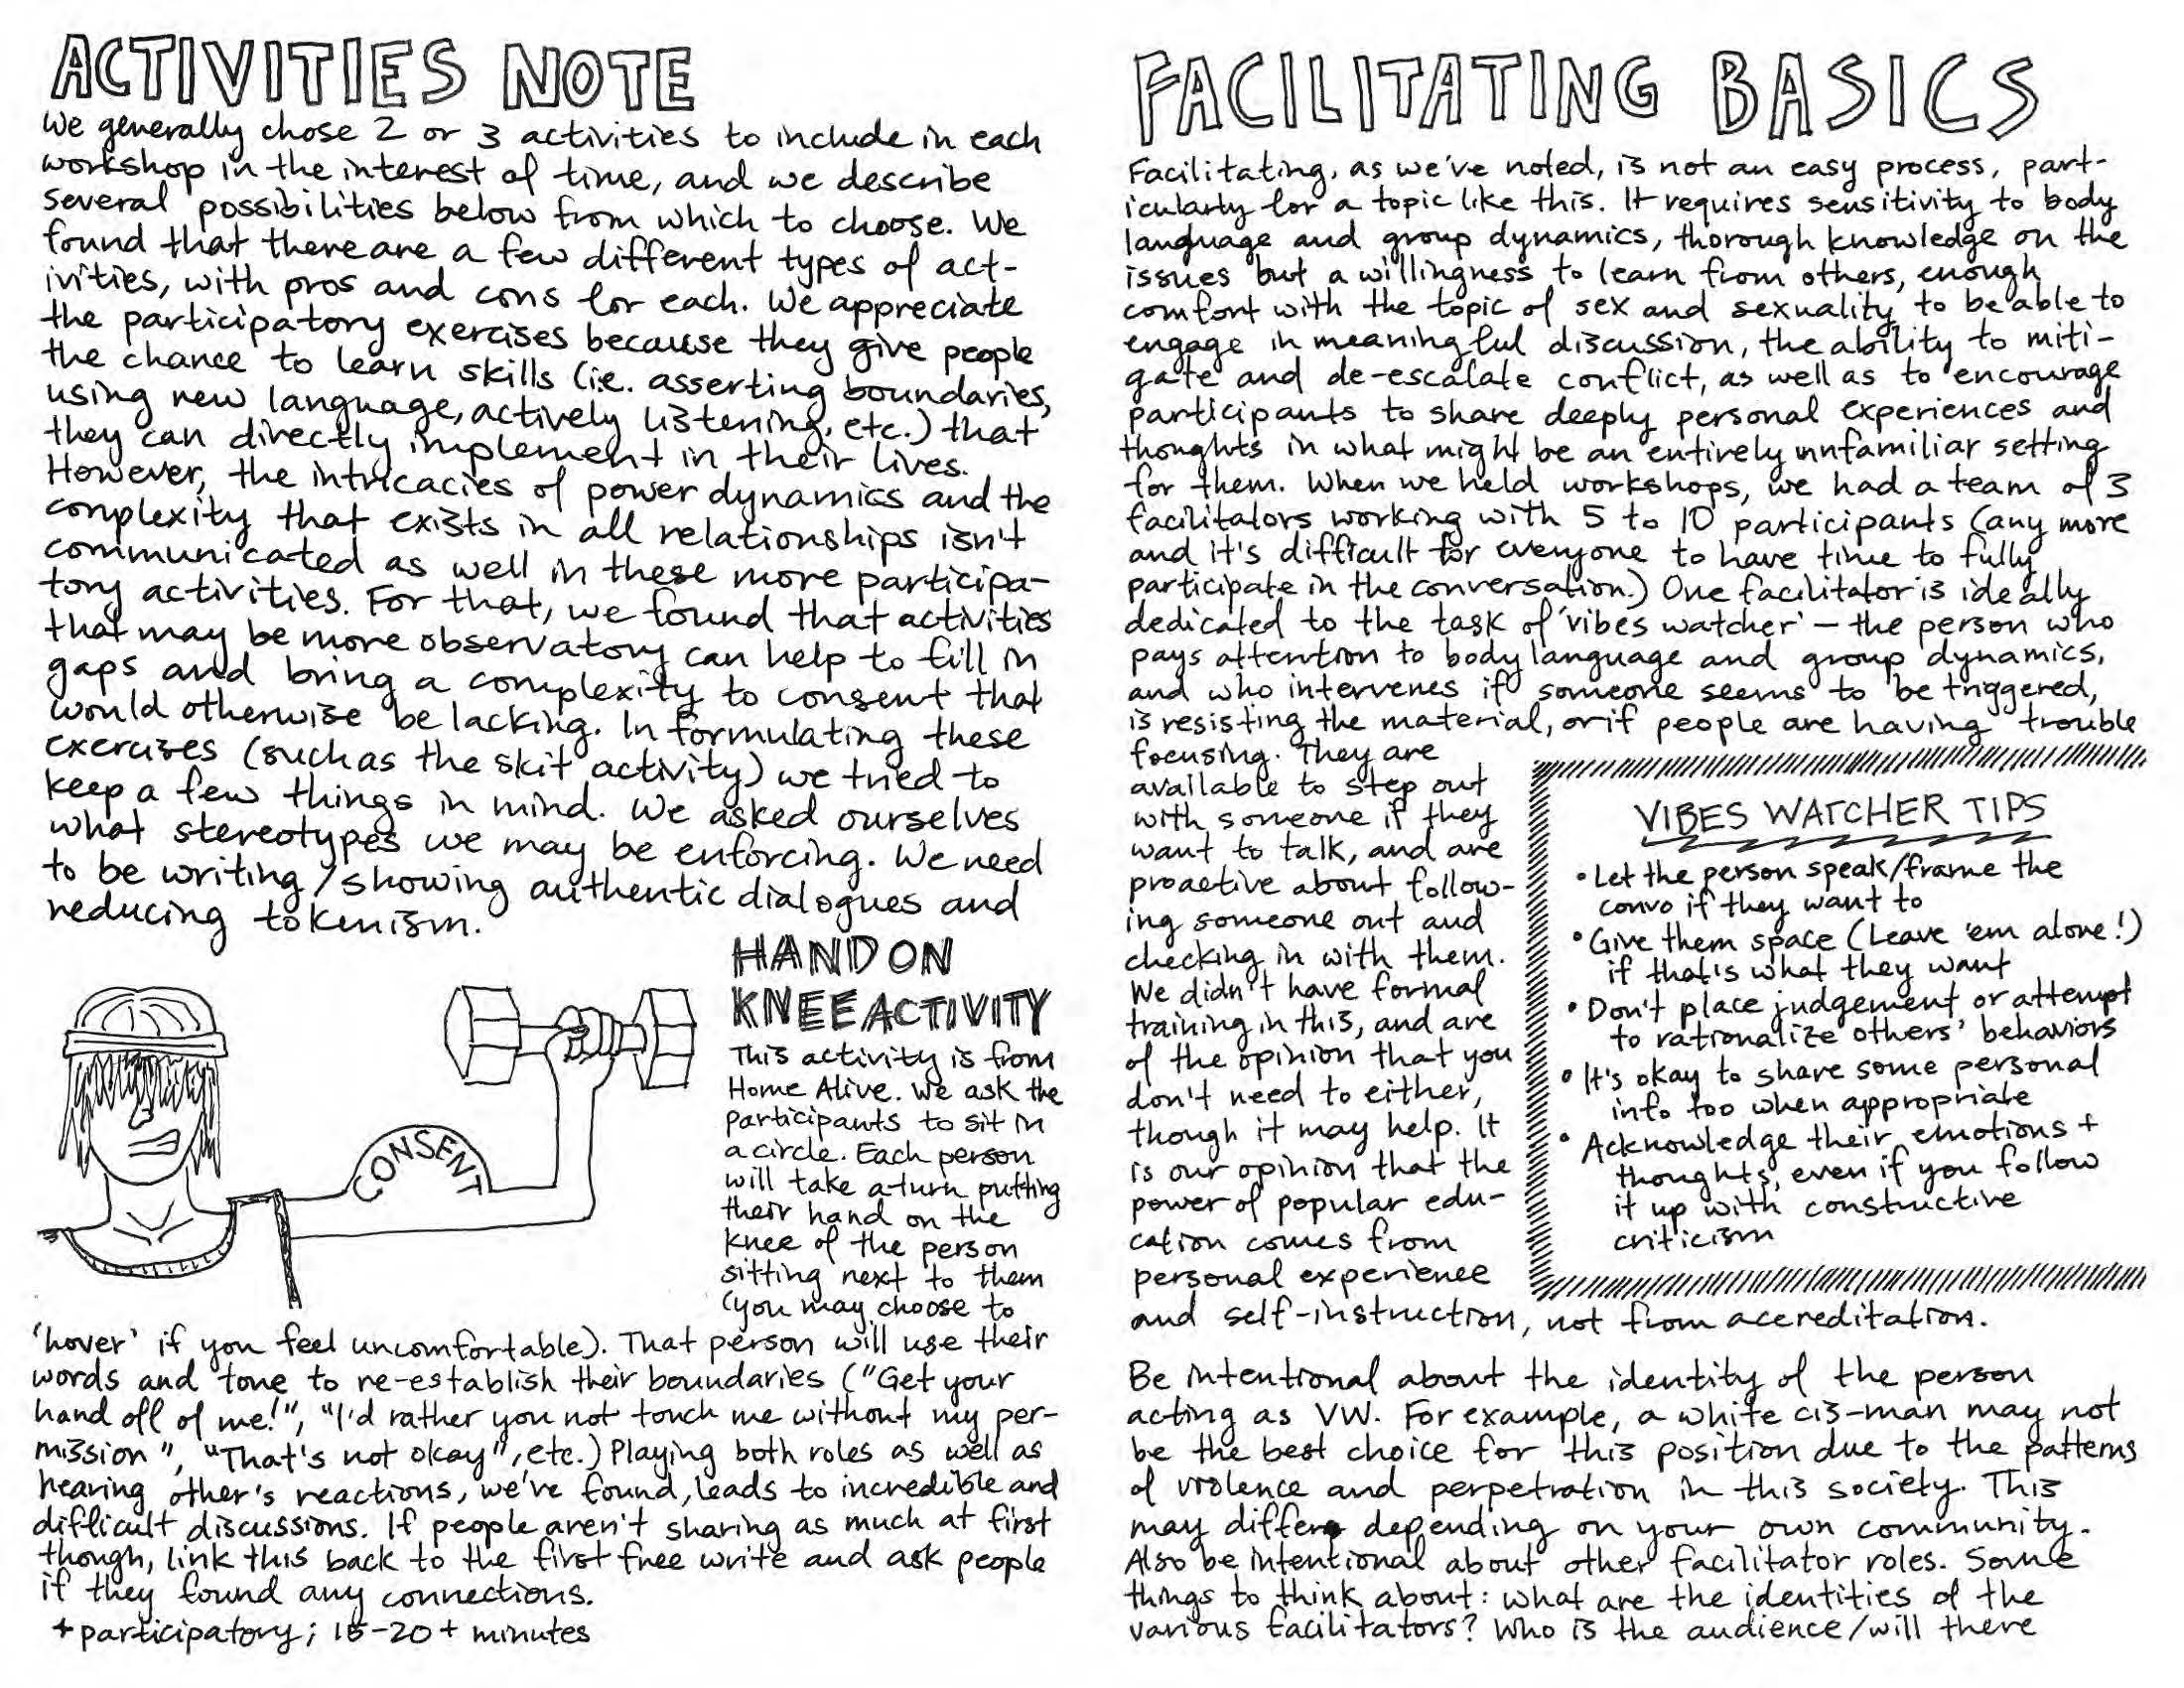 ACTIVITIES NOTE
We generally chose 2 or 3 activities to include in each
workshop in the interest of time, and we describe
several possibilities below from which to choose. We
found that there are a few different types of act-
ivities, with pros and cons for each. We appreciate
the participatory exercises because they give people
the chance to learn skills (i.e. asserting boundaries,
using new language, actively listening, etc.) that
they can directly implement in their lives.
However, the intricacies of power dynamics and the
complexity that exists in all relationships isn't
communicated as well in these more participa-
tory activities. For that, we found that activities
that may be more observatory can help to fill in
gaps and bring a complexity to consent that
would otherwise be lacking. In formulating these
exercises (such as the skit activity) we tried to
keep a few things in mind. We asked ourselves
what stereotypes we may be enforcing. We need
to be writing/showing authentic dialogues and
reducing tokenism.
CONSENT
HAND ON
KNEE ACTIVITY
This activity is from
Home Alive. We ask the
participants to sit in
a circle. Each person
will take a turn putting
their hand on the
knee of the person
sitting next to them
(you may choose to
'hover' if you feel uncomfortable). That person will use their
words and tone to re-establish their boundaries ("Get your
hand off of me!", "I'd rather you not touch me without my per-
mission", "That's not okay", etc.) Playing both roles as well as
hearing other's reactions, we've found, leads to incredible and
difficult discussions. If people aren't sharing as much at first
though, link this back to the first free write and ask people
if they found any connections.
+ participatory; 15-20+ minutes
FACILITATING BASICS
Facilitating, as we've noted, is not an easy process, part-
icularly for a topic like this. It requires sensitivity to body
language and group dynamics, thorough knowledge on the
issues but a willingness to learn from others, enough
comfort with the topic of sex and sexuality to be able to
engage in meaningful discussion, the ability to miti-
gate and de-escalate conflict, as well as to encourage
participants to share deeply personal experiences and
thoughts in what might be an entirely unfamiliar setting
for them. When we held workshops, we had a team of 3
facilitators working with 5 to 10 participants (any more
and it's difficult for everyone to have time to fully
participate in the conversation.) One facilitator is ideally
dedicated to the task of 'vibes watcher' — the person who
pays attention to body language and group dynamics,
and who intervenes if someone seems to be triggered,
is resisting the material, or if people are having trouble
focusing. They are
available to step out
with someone if they
want to talk, and are
proactive about follow-
ing someone out and
checking in with them.
We didn't have formal
training in this, and are
of the opinion that you
don't need to either,
though it may help. It
is our opinion that the
power of popular edu-
cation comes from
personal experience
and self-instruction, not from accreditation.
VIBES WATCHER TIPS
• Let the person speak/frame the
convo if they want to
• Give them space (Leave 'em alone!)
if that's what they want
• Don't place judgement or attempt
to rationalize others' behaviors
• It's okay to share some personal
info too when appropriate
• Acknowledge their emotions +
thoughts, even if you follow
it up with constructive
criticism
Be intentional about the identity of the person
acting as VW. For example, a white cis-man may not
be the best choice for this position due to the patterns
of violence and perpetration in this society. This
may differ depending on your own community.
Also be intentional about other facilitator roles. Some
things to think about: what are the identities of the
various facilitators? Who is the audience/will there